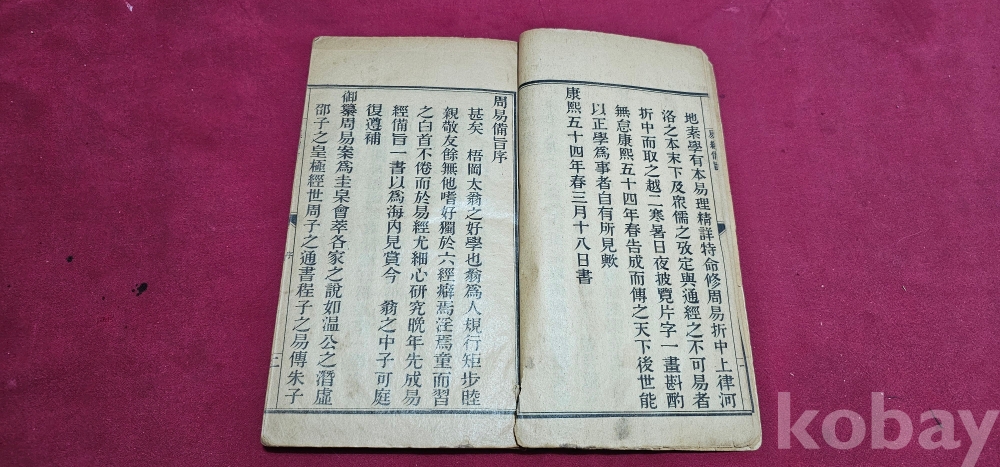 地素學有本易理精詳特命修周易折中上律河
洛之本末下及衆儒之攷定與通經之不可易者
折中而取之越二寒暑日夜披覽片字一畫斟酌
無怠康熙五十四年春告成而傳之天下後世能
以正學爲事者自有所見歟
康熙五十四年春三月十八日書
周易備旨序
甚矣 梧岡太翁之好學也翁爲人規行矩步睦
親敬友餘無他嗜好獨於六經癖焉淫焉童而習
之白首不倦而於易經尤細心研究晚年先成易
經備旨一書以爲海內見賞今 翁之中子可庭
復遵補
御纂周易案爲圭臬會萃各家之說如溫公之潛虛
邵子之皇極經世周子之通書程子之易傳朱子
序
三
kobay